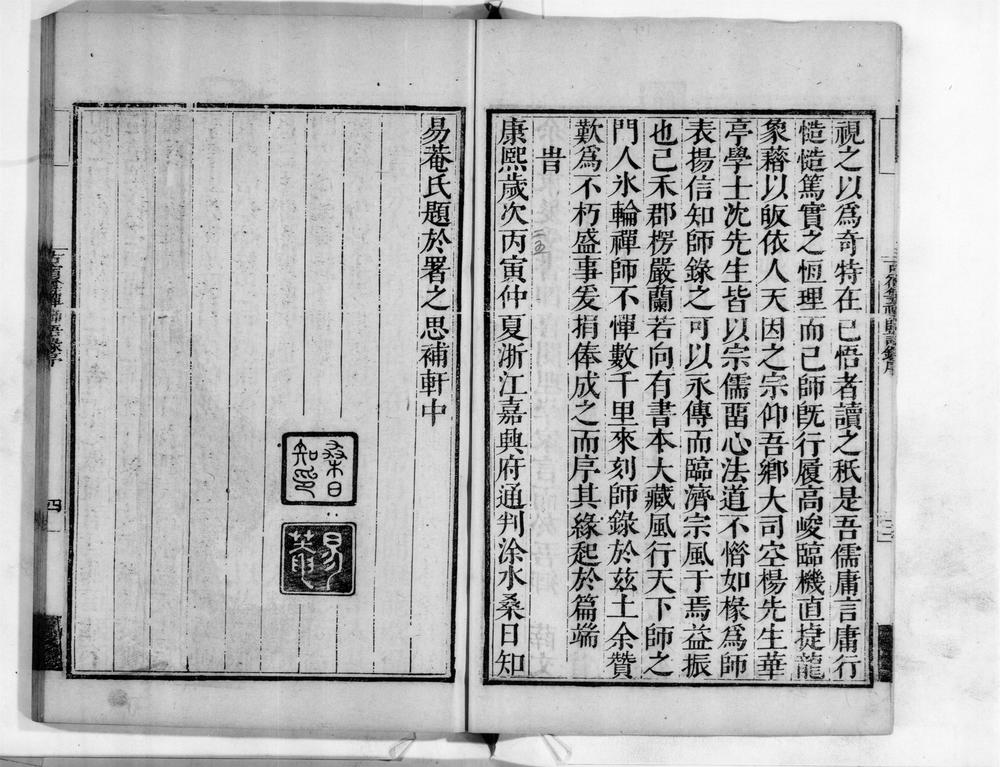 視之以爲奇特在已悟者讀之秪是吾儒庸言庸行
慥慥篤實之恒理而已師旣行履高峻臨機直捷龍
象蕱以皈依人天因之宗仰吾鄉大司空楊先生華
亭學士沈先生皆以宗儒畱心法道不惜如椽爲師
表揚信知師錄之可以永傳而臨濟宗風于焉益振
也已禾郡楞嚴蘭若向有書本大藏風行天下師之
門人氷輪禪師不憚數千里來刻師錄於茲土余贊
歎爲不朽盛事爰捐俸成之而序其緣起於篇端
旹
康熙歲次丙寅仲夏浙江嘉興府通判涂水桑日知
易菴氏題於署之思補軒中
桑日知印
易菴
四